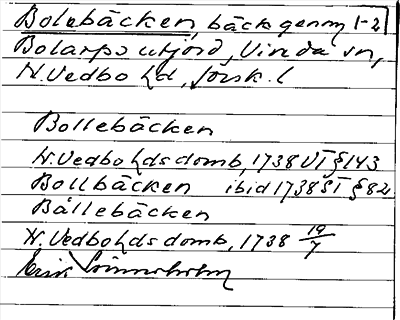 Bolebäcken, bäck genom 1-2
Bolarps utjord, Vireda sn,
N. Vedbo hd, Jönk. l
Bollebäcken
N. Vedbo hds domb, 1738 VT § 143
Bollbäcken ibid 1738 ST § 82
Bållebäcken
N. Vedbo hds domb, 1738 19/7
Erik